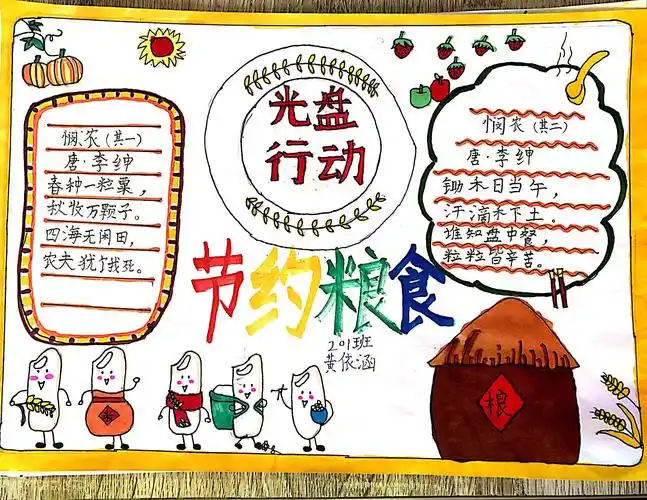 光盘
行动
悯农（其一）
唐·李绅
春种一粒粟，
秋收万颗子。
四海无闲田，
农夫犹饿死。
悯农（其二）
唐·李绅
锄禾日当午，
汗滴禾下土。
谁知盘中餐，
粒粒皆辛苦。
节约粮食
201班
黄依涵
粮